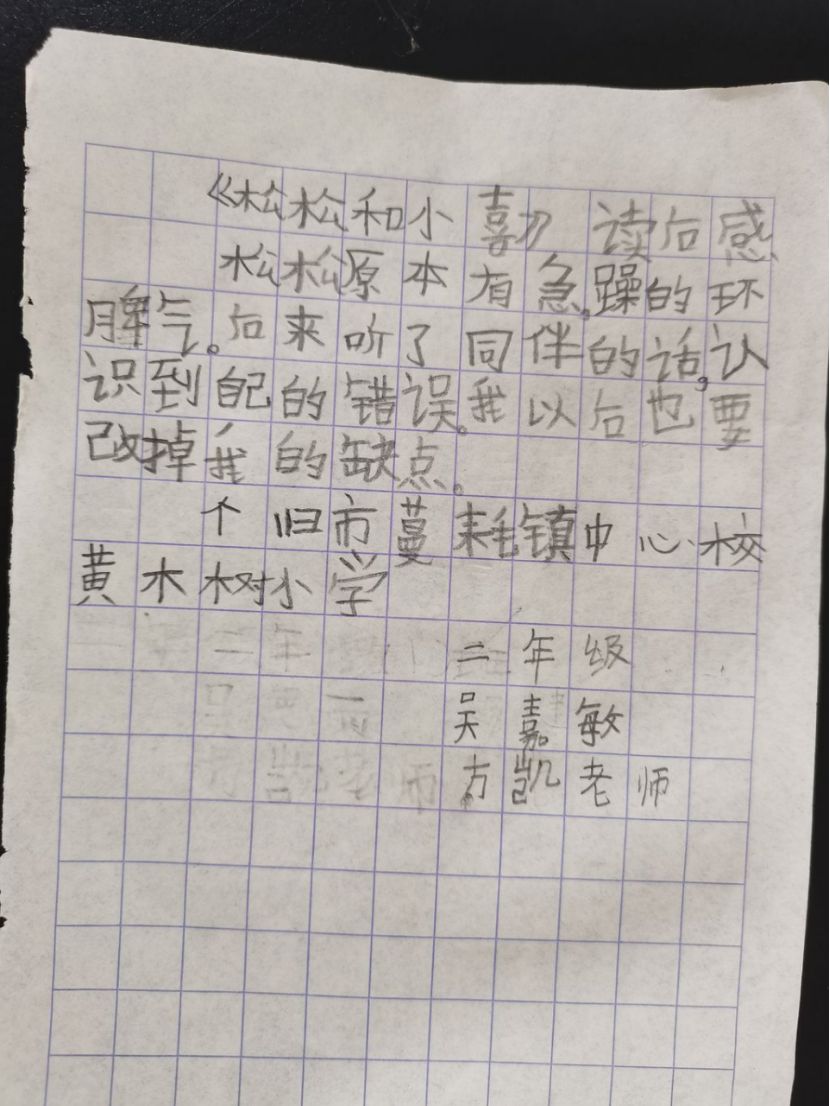 《松松和小喜》读后感
松松原本有急躁的环
脾气。后来听了同伴的话,认
识到自己的错误。我以后也要
改掉我的缺点。
个旧市蔓耗镇中心校
黄木树小学
二年级
吴嘉敏
方凯老师